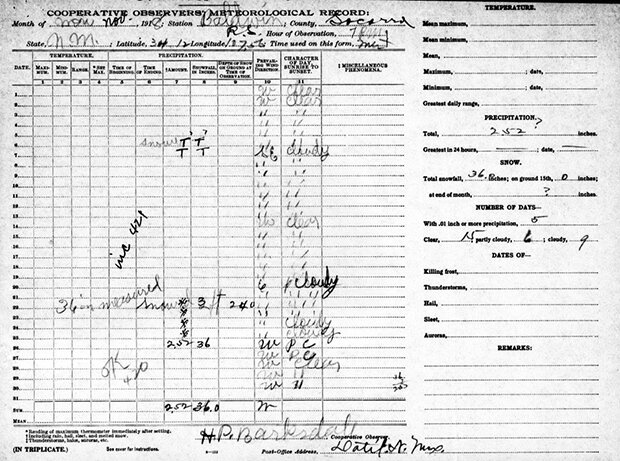 COOPERATIVE OBSERVERS' METEOROLOGICAL RECORD:
Month of Nov. 1918 Station Baldwin; County, Socorro
State, N.M.; Latitude, 34.12 Longitude, Time used on this form,
Hour of Observation,
DATE. TEMPERATURE. PRECIPITATION. PREVAILING WIND DIRECTION. CHARACTER OF DAY SUNRISE TO SUNSET. ‡ MISCELLANEOUS PHENOMENA.
MAXIMUM. MINIMUM. RANGE. * SET MAX. TIME OF BEGINNING. TIME OF ENDING. † AMOUNT. SNOWFALL IN INCHES. DEPTH OF SNOW ON GROUND AT TIME OF OBSERVATION
1 2 3 4 5 6 7 8 9 10 11
1 W Clear
2 W Clear
3 " "
4 " "
5 " "
6 Snow T? T?
7 T T Cloudy
8 " "
9 " "
10 " "
11 " "
12 " "
13 " "
14 W clear
15 " "
16 " "
17 " "
18 " "
19 " "
20 Cloudy
inc 421
21 36 in measured Snow * 3 ft 240
22 *
23 * Cloudy
24 * Cloudy
25 2.52 36 W P C
26 W P C
OK
27 W Clear
28 W "
29 W "
30
31
SUM 2.52 36.0 W
MEAN
* Reading of maximum thermometer immediately after setting.
† Including rain, hail, sleet, and melted snow.
‡ Thunderstorms, halos, auroras, etc.
H.P. Barksdale Cooperative Observer.
(IN TRIPLICATE.) See cover for instructions. Post-Office Address, Datil, N. Mex.
TEMPERATURE.
Mean maximum,
Mean minimum,
Mean,
Maximum, ; date,
Minimum, ; date,
Greatest daily range,
PRECIPITATION.
Total, 2.52 ? inches.
Greatest in 24 hours, — ; date, —
SNOW.
Total snowfall, 36.0 inches; on ground 15th, 0 inches;
at end of month, ? inches.
NUMBER OF DAYS—
With .01 inch or more precipitation, 5
Clear, 15 partly cloudy, 6 ; cloudy, 9
DATES OF—
Killing frost,
Thunderstorms,
Hail,
Sleet,
Auroras,
REMARKS: